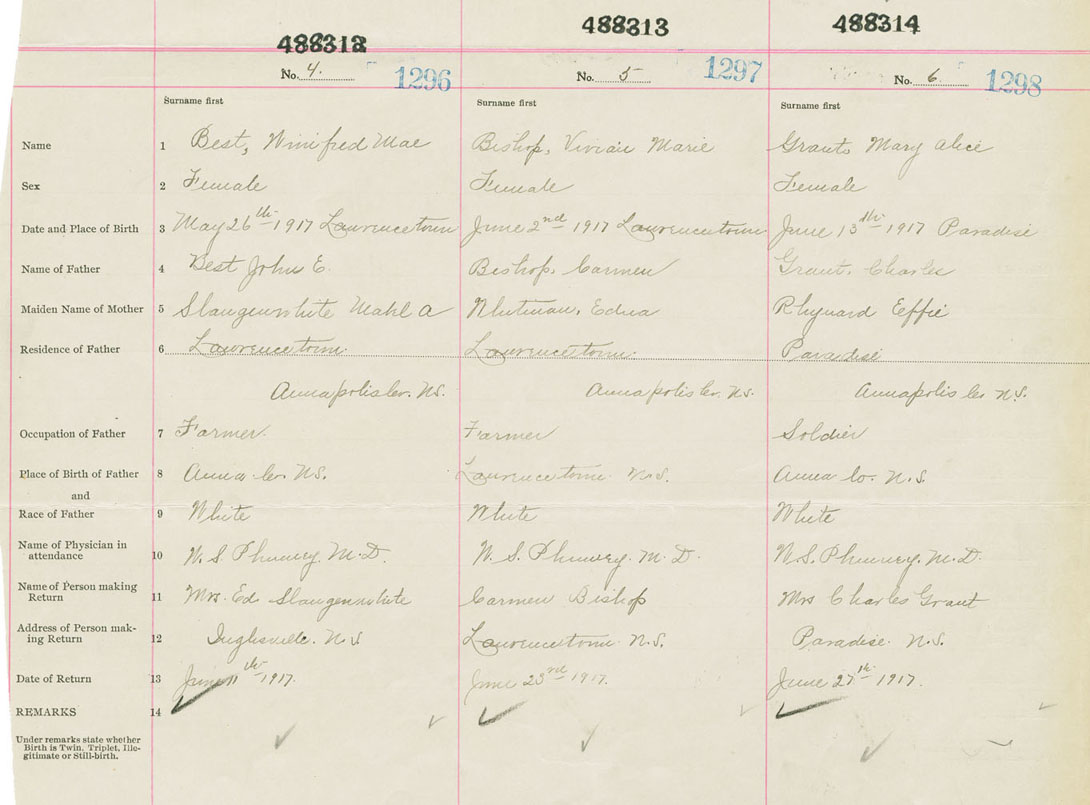 488312 488313 488314
No. 4. 1296 No. 5 1297 No. 6 1298
Surname first Surname first Surname first
Name 1 Best, Winifred Mae Bishop, Vivian Marie Grant, Mary Alice
Sex 2 Female Female Female
Date and Place of Birth 3 May 26th 1917 Lawrencetown June 2nd 1917 Lawrencetown June 13th 1917 Paradise
Name of Father 4 Best John E. Bishop, Carmen Grant, Charles
Maiden Name of Mother 5 Slaugenwhite Mabl A Whitman, Edna Rhynard Effie
Residence of Father 6 Lawrencetown Lawrencetown. Paradise
Annapolis Co. N.S. Annapolis Co. N.S. Annapolis Co N.S.
Occupation of Father 7 Farmer. Farmer Soldier
Place of Birth of Father 8 Anna Co. N.S. Lawrencetown N.S. Anna Co. N.S.
and
Race of Father 9 White White White
Name of Physician in
attendance 10 W. S. Phinney M.D. W. S. Phinney. M.D. W. S. Phinney. M.D.
Name of Person making
Return 11 Mrs. Ed. Slaugenwhite Carmen Bishop Mrs Charles Grant
Address of Person mak-
ing Return 12 Inglisville. N.S Lawrencetown N.S. Paradise. N.S.
Date of Return 13 June 11th 1917. June 23rd 1917. June 27th 1917.
REMARKS 14
Under remarks state whether
Birth is Twin, Triplet, Ille-
gitimate or Still-birth.